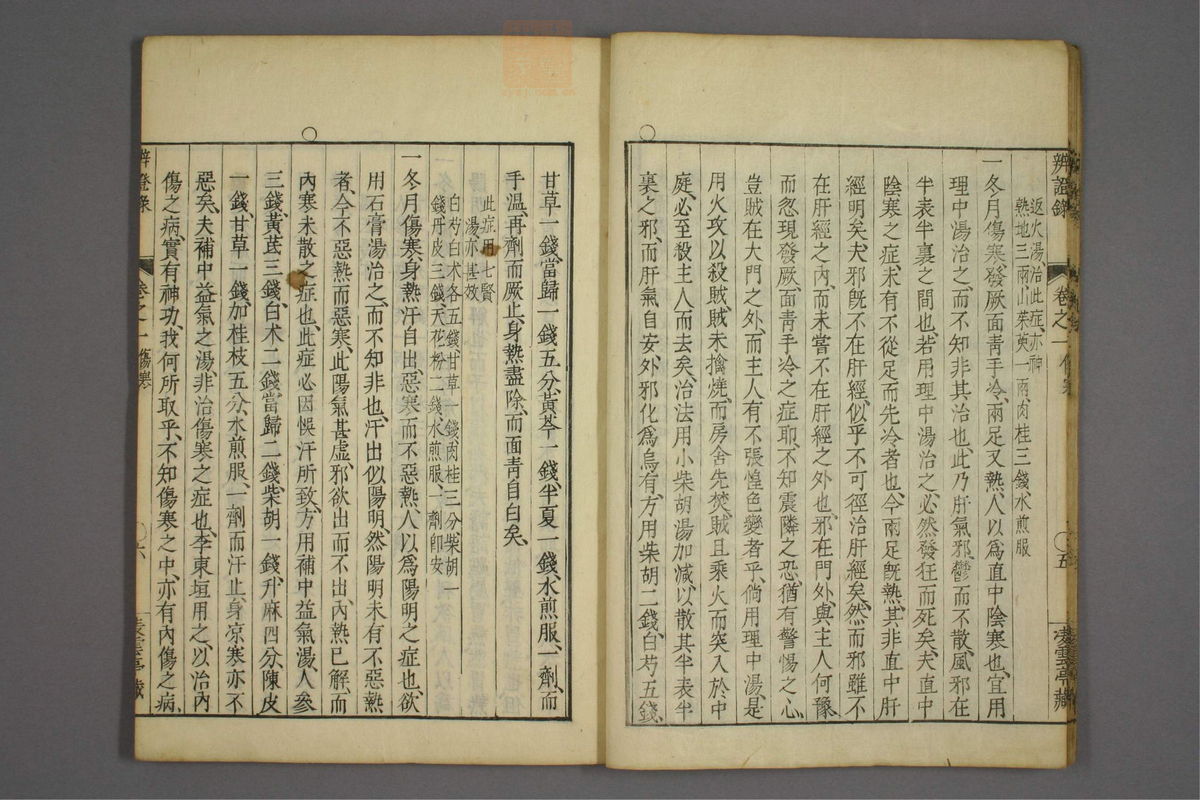 辨證錄 卷之一 傷寒 五 凌雲亭藏
返火湯治此症亦神
熟地三兩山茱萸一兩肉桂三錢水煎服
一冬月傷寒發厥面青手冷兩足又熱人以爲直中陰寒也宜用
理中湯治之而不知非其治也此乃肝氣邪鬱而不散風邪在
半表半裏之間也若用理中湯治之必然發狂而死矣夫直中
陰寒之症未有不從足而先冷者也今兩足旣熱其非直中肝
經明矣夫邪旣不在肝經似乎不可徑治肝經矣然而邪雖不
在肝經之內而未嘗不在肝經之外也邪在門外與主人何豫
而忽現發厥面青手冷之症耶不知震隣之恐猶有警惕之心
豈賊在大門之外而主人有不張惶色變者乎倘用理中湯是
用火攻以殺賊賊未擒燒而房舍先焚賊且乘火而突入於中
庭必至殺主人而去矣治法用小柴胡湯加減以散其半表半
裏之邪而肝氣自安外邪化爲烏有方用柴胡二錢白芍五錢
甘草一錢當歸一錢五分黃芩一錢半夏一錢水煎服一劑而
手溫再劑而厥止身熱盡除而面青自白矣
此症用七賢
湯亦甚效
白芍白术各五錢甘草一錢肉桂三分柴胡一
錢丹皮三錢天花粉二錢水煎服一劑卽安
一冬月傷寒身熱汗自出惡寒而不惡熱人以爲陽明之症也欲
用石膏湯治之而不知非也汗出似陽明然陽明未有不惡熱
者今不惡熱而惡寒此陽氣甚虛邪欲出而不出內熱已解而
內寒未散之症也此症必因悞汗所致方用補中益氣湯人參
三錢黃芪三錢白术二錢當歸二錢柴胡一錢升麻四分陳皮
一錢甘草一錢加桂枝五分水煎服一劑而汗止身凉寒亦不
惡矣夫補中益氣之湯非治傷寒之症也李東垣用之以治內
傷之病實有神功我何所取乎不知傷寒之中亦有內傷之病
辨證錄 卷之一 傷寒 六 凌雲亭藏